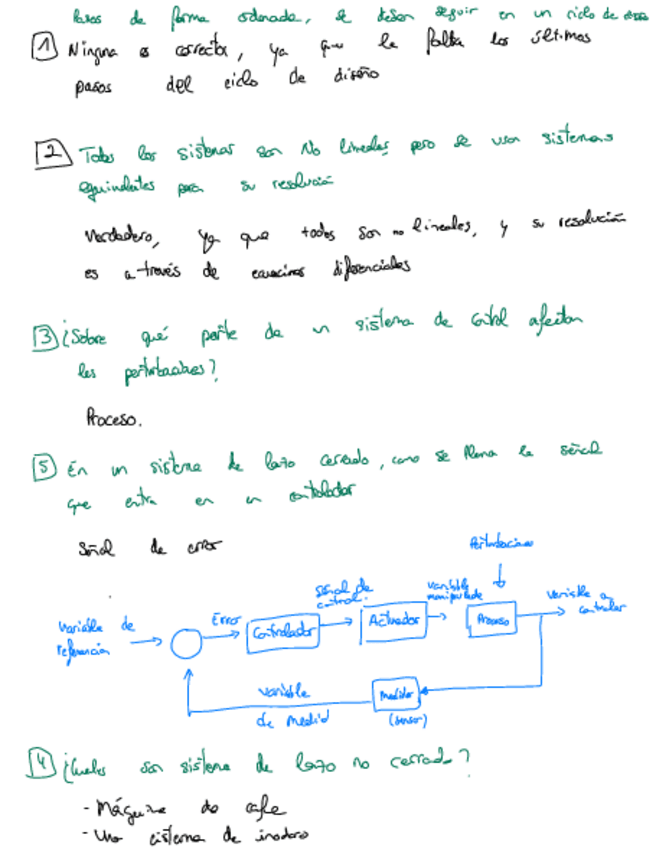 Pasos de forma ordenada, se deben seguir en un ciclo de
1 Ninguna es correcta, ya que le falta los últimos
pasos del ciclo de diseño
2 Todos los sistemas son No lineales pero se usan sistemas
equivalentes para su resolución
Verdadero, ya que todos son no lineales, y su resolución
es a través de ecuaciones diferenciales
3 ¿Sobre qué parte de un sistema de control afectan
las perturbaciones?
Proceso.
5 En un sistema de lazo cerrado, como se llama la señal
que entra en un controlador
Señal de error
Perturbaciones
Variable de referencia
Error
Controlador
Señal de control
Actuador
variable manipulada
Proceso
variable a controlar
variable de medid
Medidor
(sensor)
4 ¿Cuales son sistema de lazo no cerrado?
- Máquina de cafe
- Una cisterna de inodoro